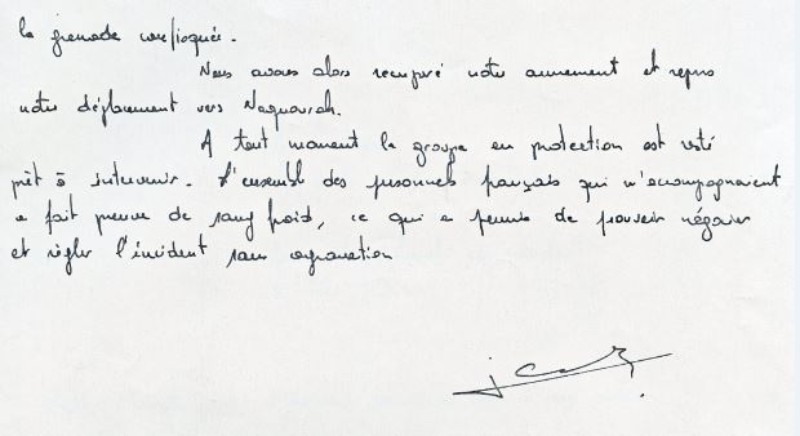 la grenade confisquée.
Nous avons alors récupéré notre armement et repris
notre déplacement vers Naquourah.
A tout moment le groupe en protection est resté
prêt à intervenir. L'ensemble des personnels français qui m'accompagnaient
a fait preuve de sang froid, ce qui a permis de pouvoir négocier
et régler l'incident sans aggravation